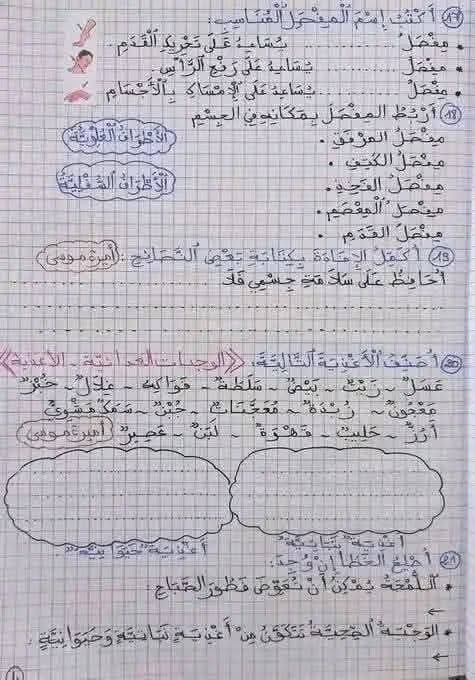 17) أكتب إسم المفصل المناسب:
• مفصل ............ يساعد على تحريك القدم.
• مفصل ............ يساعد على رفع الرأس.
• مفصل ............ يساعد على الإمساك بالأجسام
18) أربط المفصل بمكانه في الجسم
مفصل المرفق •
الأطراف العلوية
مفصل الكتف •
مفصل الفخذ •
الأطراف السفلية
مفصل المعصم •
مفصل القدم •
19) أكمل الإفادة بكتابة بعض النصائح: أميرة موسى
أحافظ على سلامة جسمي فلا
20) أصنف الأغذية التالية: «الوجبات الغذائية - الأغذية»
عسل - زيت - بيض - سلطة - فواكه - غلال - خبز
معجون - زبدة - معجنات - جبن - سمك مشوي
أرز - حليب - قهوة - لبن - عصير أميرة موسى
أغذية نباتية
أغذية حيوانية
21) أصلح الخطأ إن وجد:
• اللمجة يمكن أن تعوض فطور الصباح:
←
• الوجبة الصحية تتكون من أغذية نباتية وحيوانية:
←